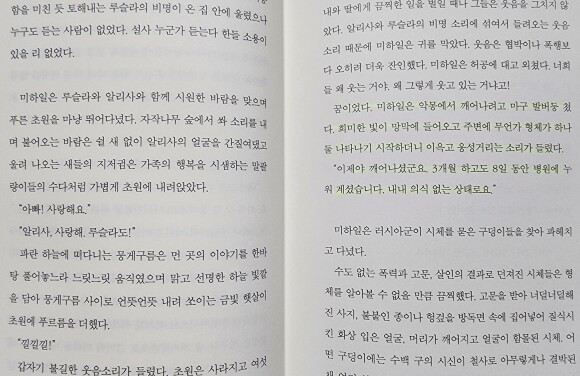 함을 미친 듯 토해내는 루슬라의 비명이 온 집 안에 울렸으나
누구도 듣는 사람이 없었다. 설사 누군가 듣는다 한들 소용이
있을 리 없었다.
미하일은 루슬라와 알리사와 함께 시원한 바람을 맞으며
푸른 초원을 마냥 뛰어다녔다. 자작나무 숲에서 쏴 소리를 내
며 불어오는 바람은 쉴 새 없이 알리사의 얼굴을 간질여댔고
울려 나오는 새들의 지저귐은 가족의 행복을 시샘하는 말괄
량이들의 수다처럼 가볍게 초원에 내려앉았다.
“아빠! 사랑해요.”
“알리사, 사랑해. 루슬라도!”
파란 하늘에 떠다니는 뭉게구름은 먼 곳의 이야기를 한바
탕 풀어놓느라 느릿느릿 움직였으며 맑고 선명한 하늘 빛깔
을 담아 뭉게구름 사이로 언뜻언뜻 내려 쏘이는 금빛 햇살이
초원에 푸르름을 더했다.
“낄낄낄!”
갑자기 불길한 웃음소리가 들렸다. 초원은 사라지고 여섯
내와 딸에게 끔찍한 일을 벌일 때나 그들은 웃음을 그치지 않
았다. 알리사와 루슬라의 비명 소리에 섞여서 들려오는 웃음
소리 때문에 미하일은 귀를 막았다. 웃음은 협박이나 폭행보
다 오히려 더욱 잔인했다. 미하일은 허공에 대고 외쳤다. 너희
들 왜 웃는 거야. 왜 그렇게 웃고 있는 거냐고!
꿈이었다. 미하일은 악몽에서 깨어나려고 마구 발버둥 쳤
다. 희미한 빛이 망막에 들어오고 주변에 무언가 형체가 하나
둘 나타나기 시작하더니 이윽고 웅성거리는 소리가 들렸다.
“이제야 깨어나셨군요. 3개월 하고도 8일 동안 병원에 누
워 계셨습니다. 내내 의식 없는 상태로요.”
미하일은 러시아군이 시체를 묻은 구덩이들을 찾아 파헤치
고 다녔다.
수도 없는 폭력과 고문, 살인의 결과로 던져진 시체들은 형
체를 알아볼 수 없을 만큼 끔찍했다. 고문을 받아 너덜너덜해
진 사지, 불붙인 종이나 헝겊을 방독면 속에 집어넣어 질식시
킨 화상 입은 얼굴, 머리가 깨어지고 얼굴이 함몰된 시체. 어
떤 구덩이에는 수백 구의 시신이 철사로 아무렇게나 결박된